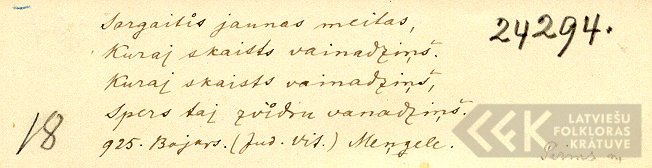 Sargaitīs jaunas meitas,
Kuraj skaists vainadziņš.
Kuraj skaists vainadziņš,
Spers taj zvīdru vanadziņš.
925. Bajars. (Jud. Vil.) Meņgele.
24294.
18
LATVIEŠU
FOLKLORAS
KRĀTUVE
LFK